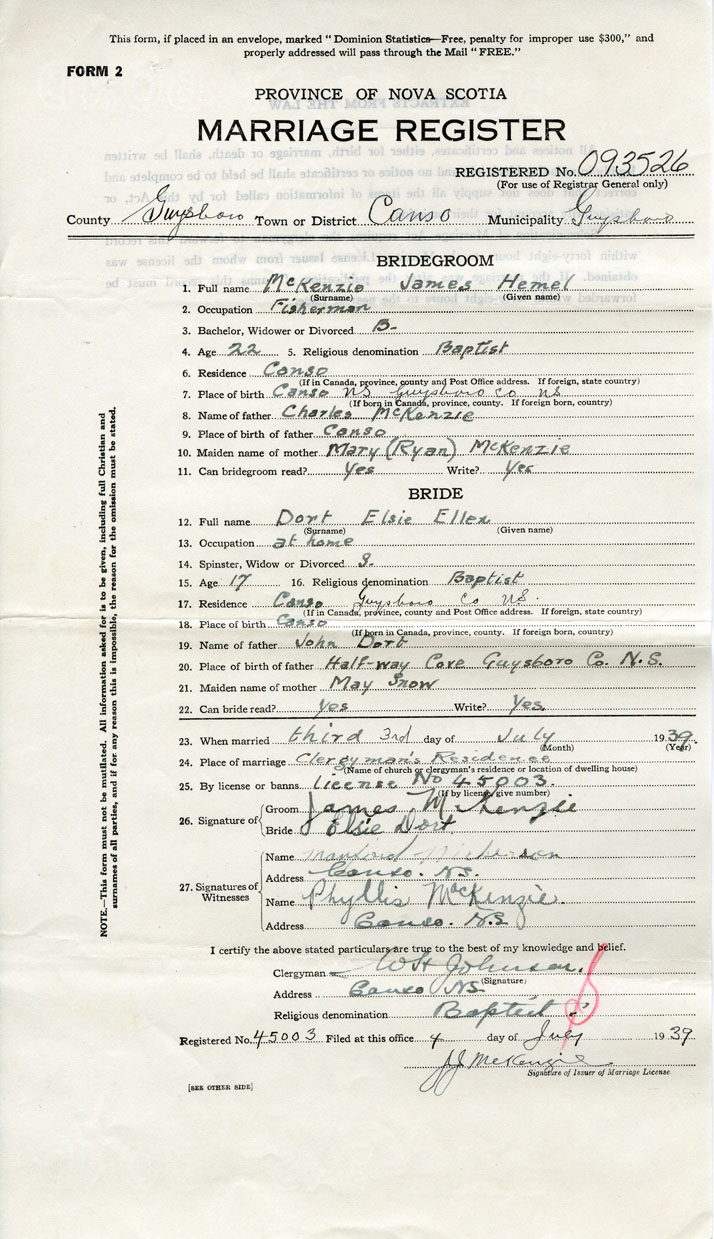 This form, if placed in an envelope, marked "Dominion Statistics—Free, penalty for improper use $300," and
properly addressed will pass through the Mail "FREE."
FORM 2
PROVINCE OF NOVA SCOTIA
MARRIAGE REGISTER
REGISTERED No. 093526
(For use of Registrar General only)
County Guysboro Town or District Canso Municipality Guysboro
BRIDEGROOM
1. Full name McKenzie James Hemel
(Surname) (Given name)
2. Occupation Fisherman
3. Bachelor, Widower or Divorced B-
4. Age 22 5. Religious denomination Baptist
6. Residence Canso
(If in Canada, province, county and Post Office address. If foreign, state country)
7. Place of birth Canso NS Guysboro Co NS
(If born in Canada, province, county. If foreign born, country)
8. Name of father Charles McKenzie
9. Place of birth of father Canso
10. Maiden name of mother Mary (Ryan) McKenzie
11. Can bridegroom read? Yes Write? Yes
BRIDE
12. Full name Dort Elsie Ellen
(Surname) (Given name)
13. Occupation at home
14. Spinster, Widow or Divorced S.
15. Age 17 16. Religious denomination Baptist
17. Residence Canso Guysboro Co NS.
(If in Canada, province, county and Post Office address. If foreign, state country)
18. Place of birth Canso
(If born in Canada, province, county. If foreign born, country)
19. Name of father John Dort
20. Place of birth of father Half-way Cove Guysboro Co. N.S.
21. Maiden name of mother May Snow
22. Can bride read? Yes Write? Yes.
23. When married third 3rd day of July 1939.
(Month) (Year)
24. Place of marriage Clergyman's Residence
(Name of church or clergyman's residence or location of dwelling house)
25. By license or banns license No 45003.
(If by license give number)
26. Signature of
Groom James McKenzie
Bride Elsie Dort
27. Signatures of Witnesses
Name
Address Canso. N.S.
Name Phyllis McKenzie.
Address Canso. N.S
I certify the above stated particulars are true to the best of my knowledge and belief.
Clergyman WH Johnson.
(Signature)
Address Canso NS
Religious denomination Baptist
Registered No. 45003 Filed at this office 4 day of July 1939
JJ McKenzie
Signature of Issuer of Marriage License
[SEE OTHER SIDE]
NOTE.—This form must not be mutilated. All information asked for is to be given, including full Christian and
surnames of all parties, and if for any reason this is impossible, the reason for the omission must be stated.